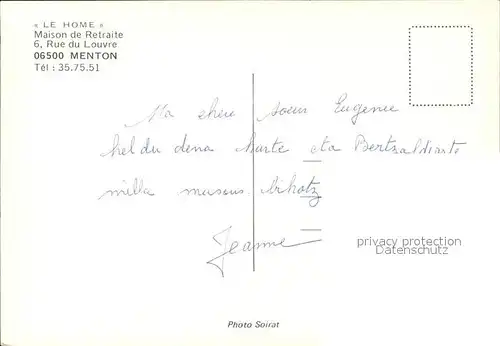 « LE HOME »
Maison de Retraite
6, Rue du Louvre
06500 MENTON
Tél : 35.75.51
Ma soeur Eugenie
hel du dena eta
milla musous bihotz
Jeanne
privacy protection
Datenschutz
Photo Soirat